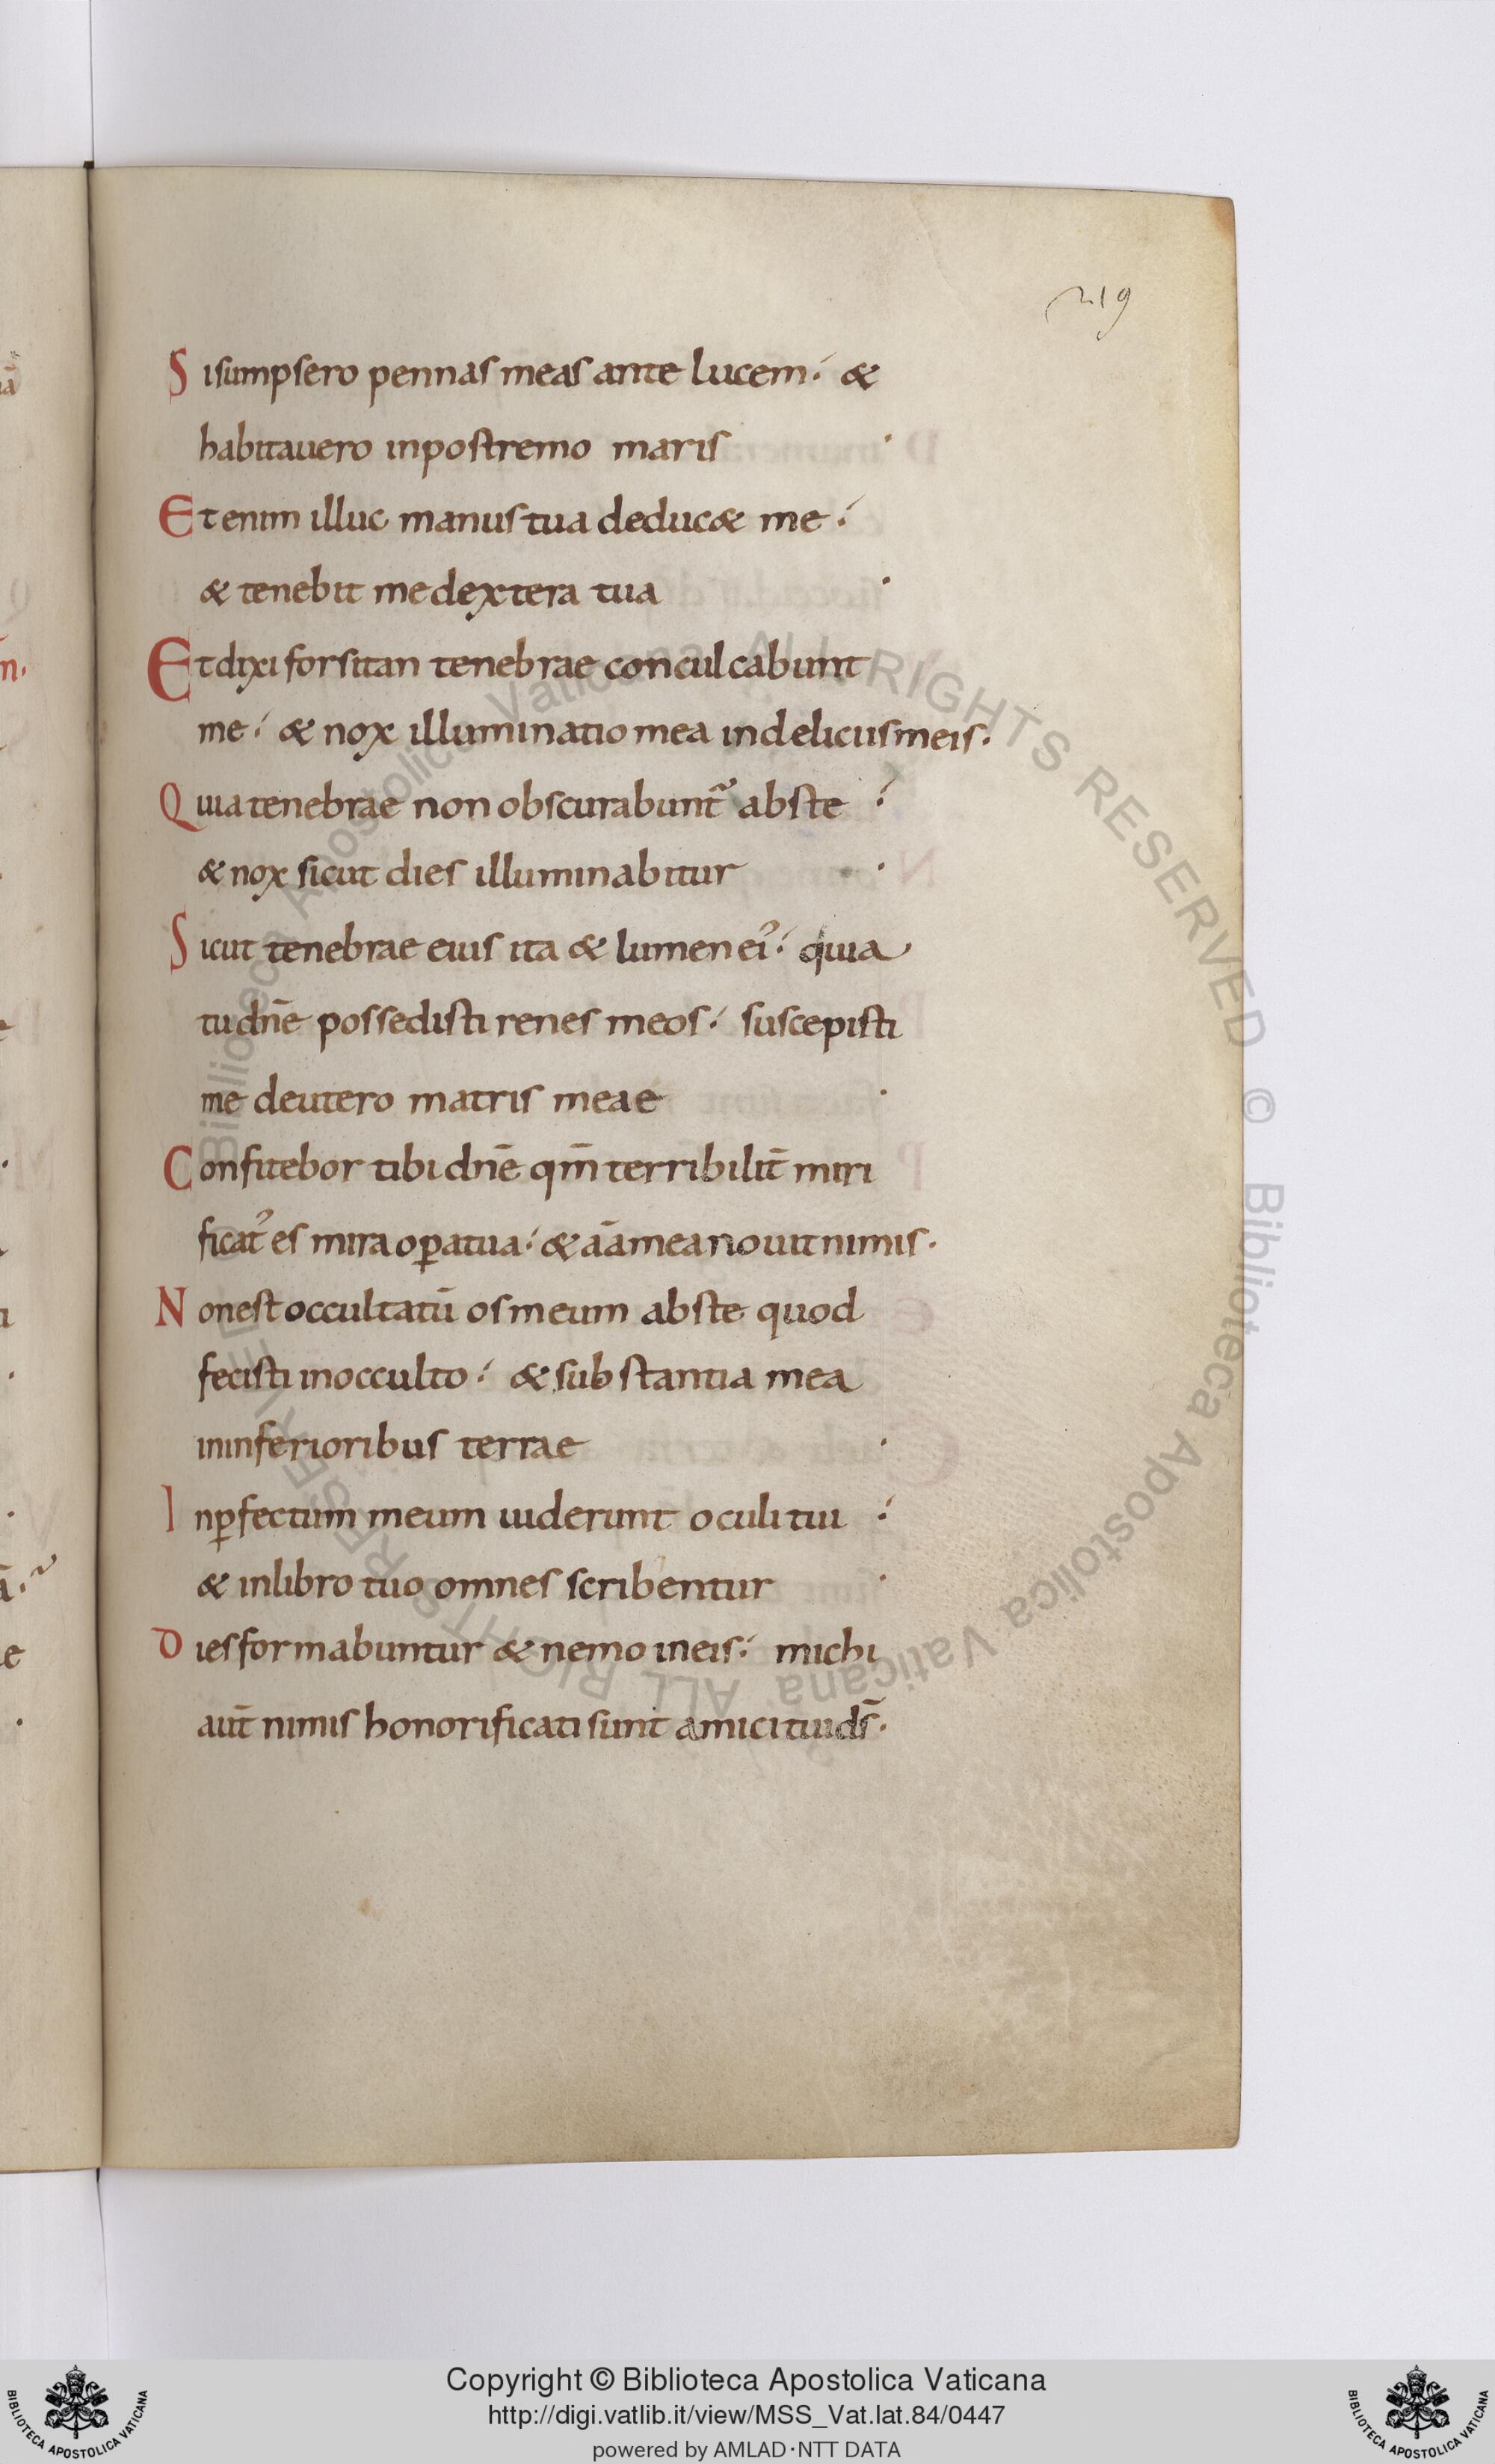 219
Si sumpsero pennas meas ante lucem· &
habitauero in postremo maris ·
Etenim illuc manus tua deduc& me·
& tenebit me dextera tua ·
Et dixi forsitan tenebrae conculcabunt
me· & nox illuminatio mea in deliciis meis·
Quia tenebrae non obscurabunt᷑ abs te ·
& nox sicut dies illuminabitur ·
Sicut tenebrae eius ita & lumen ei᾿· quia
tu dn̄e possedisti renes meos· suscepisti
me de utero matris meae ·
Confitebor tibi dn̄e qm̄ terribilit̄ miri
ficat᾿ es mira oꝑa tua· & āā mea nouit nimis·
Non est occultatū os meum abs te quod
fecisti in occulto· & substantia mea
in inferioribus terrae ·
Inꝑfectum meum uiderunt oculi tui ·
& in libro tuo omnes scribentur ·
Dies formabuntur & nemo in eis· michi
aut̄ nimis honorificati sunt amici tui ds̄·
Biblioteca Apostolica Vaticana ALL RIGHTS RESERVED © Biblioteca Apostolica Vaticana ALL RIGHTS RESERVED ©
Copyright © Biblioteca Apostolica Vaticana
http://digi.vatlib.it/view/MSS_Vat.lat.84/0447
powered by AMLAD·NTT DATA
BIBLIOTECA APOSTOLICA VATICANA
BIBLIOTECA APOSTOLICA VATICANA